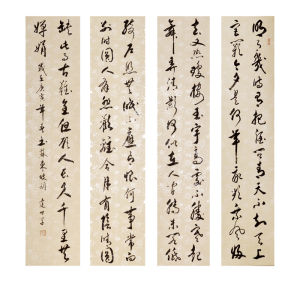 明月幾時有把酒問青天不知天上
宮闕今夕是何年我欲乘風歸
去又恐瓊樓玉宇高處不勝寒起
舞弄清影何似在人間轉朱閣低
綺户照無眠不應有恨何事常向
別時圓人有悲歡離合月有陰晴圓
缺此事古難全但願人長久千里共
嬋娟